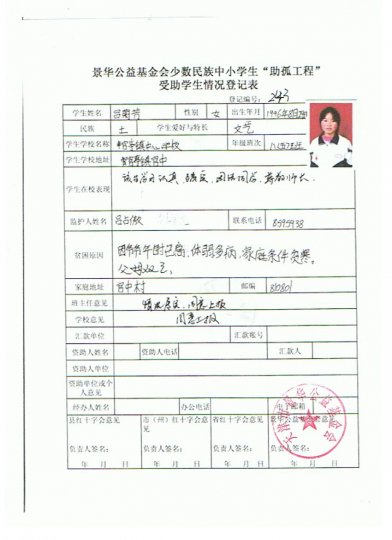 景华公益基金会少数民族中小学生“助孤工程”
受助学生情况登记表
登记编号: 243
学生姓名 性别 女 出生年月
民族 土 学生爱好与特长 文艺
学生学校名称 年级班次
学生学校地址
学生在校表现 该生学习认真, 踏实, 团结同学, 尊敬师长.
监护人姓名 联系电话 8595938
贫困原因 体弱多病, 家庭条件贫寒。
父母双亡.
家庭地址 宫中村 邮编 810801
班主任意见 情况属实, 同意上报
学校意见 同意上报
汇款单位 汇款账号
资助人姓名 资助人电话 汇款人
资助人单位
资助单位或个
人意见
经办人姓名 办公电话 电子邮箱
县红十字会意见 市(州)红十字会意见 省红十字会意见
负责人签名: 负责人签名: 负责人签名: 负责人签名:
年 月 日 年 月 日 年 月 日 年 月 日